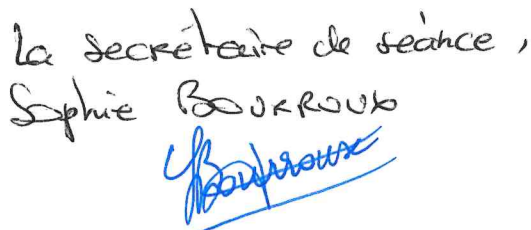 La secrétaire de séance,
Sophie BOURROUX
Bourroux